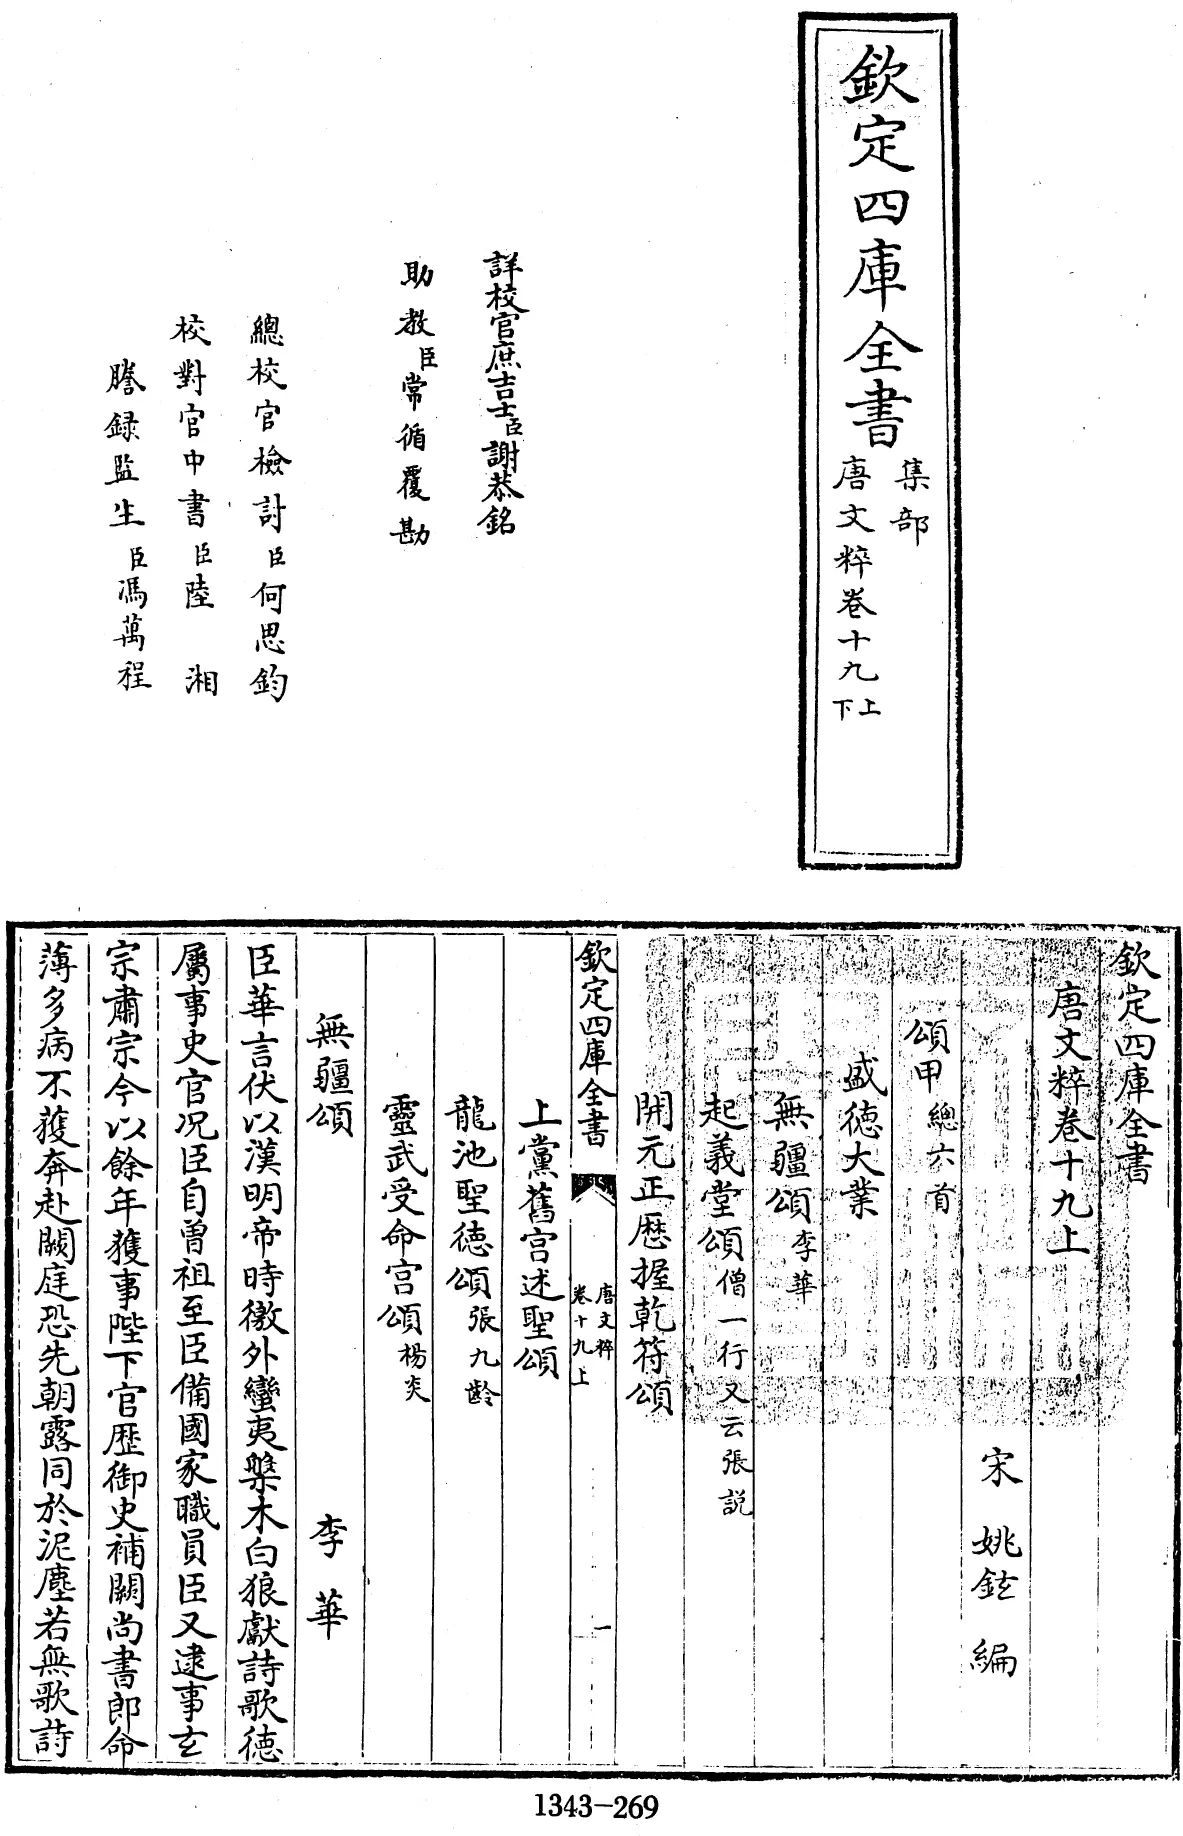 欽定四庫全書
集部
唐文粹卷十九上下
詳校官庶吉士臣謝恭銘
助教臣常循覆勘
總校官檢討臣何思鈞
校對官中書臣陸湘
謄錄監生臣馮萬程
欽定四庫全書
唐文粹卷十九上
宋 姚鉉 編
頌甲總六首
盛德大業
無疆頌李華
起義堂頌僧一行又云張說
開元正歷握乾符頌
欽定四庫全書
唐文粹
卷十九上
一
上黨舊宫述聖頌
龍池聖德頌張九齡
靈武受命宫頌楊炎
無疆頌 李華
臣華言伏以漢明帝時徼外蠻夷槃木白狼獻詩歌德
屬事史官况臣自曾祖至臣備國家職員臣又逮事玄
宗肅宗今以餘年獲事陛下官歷御史補闕尚書郎命
薄多病不獲奔赴闕庭恐先朝露同於泥塵若無歌詩
1343-269